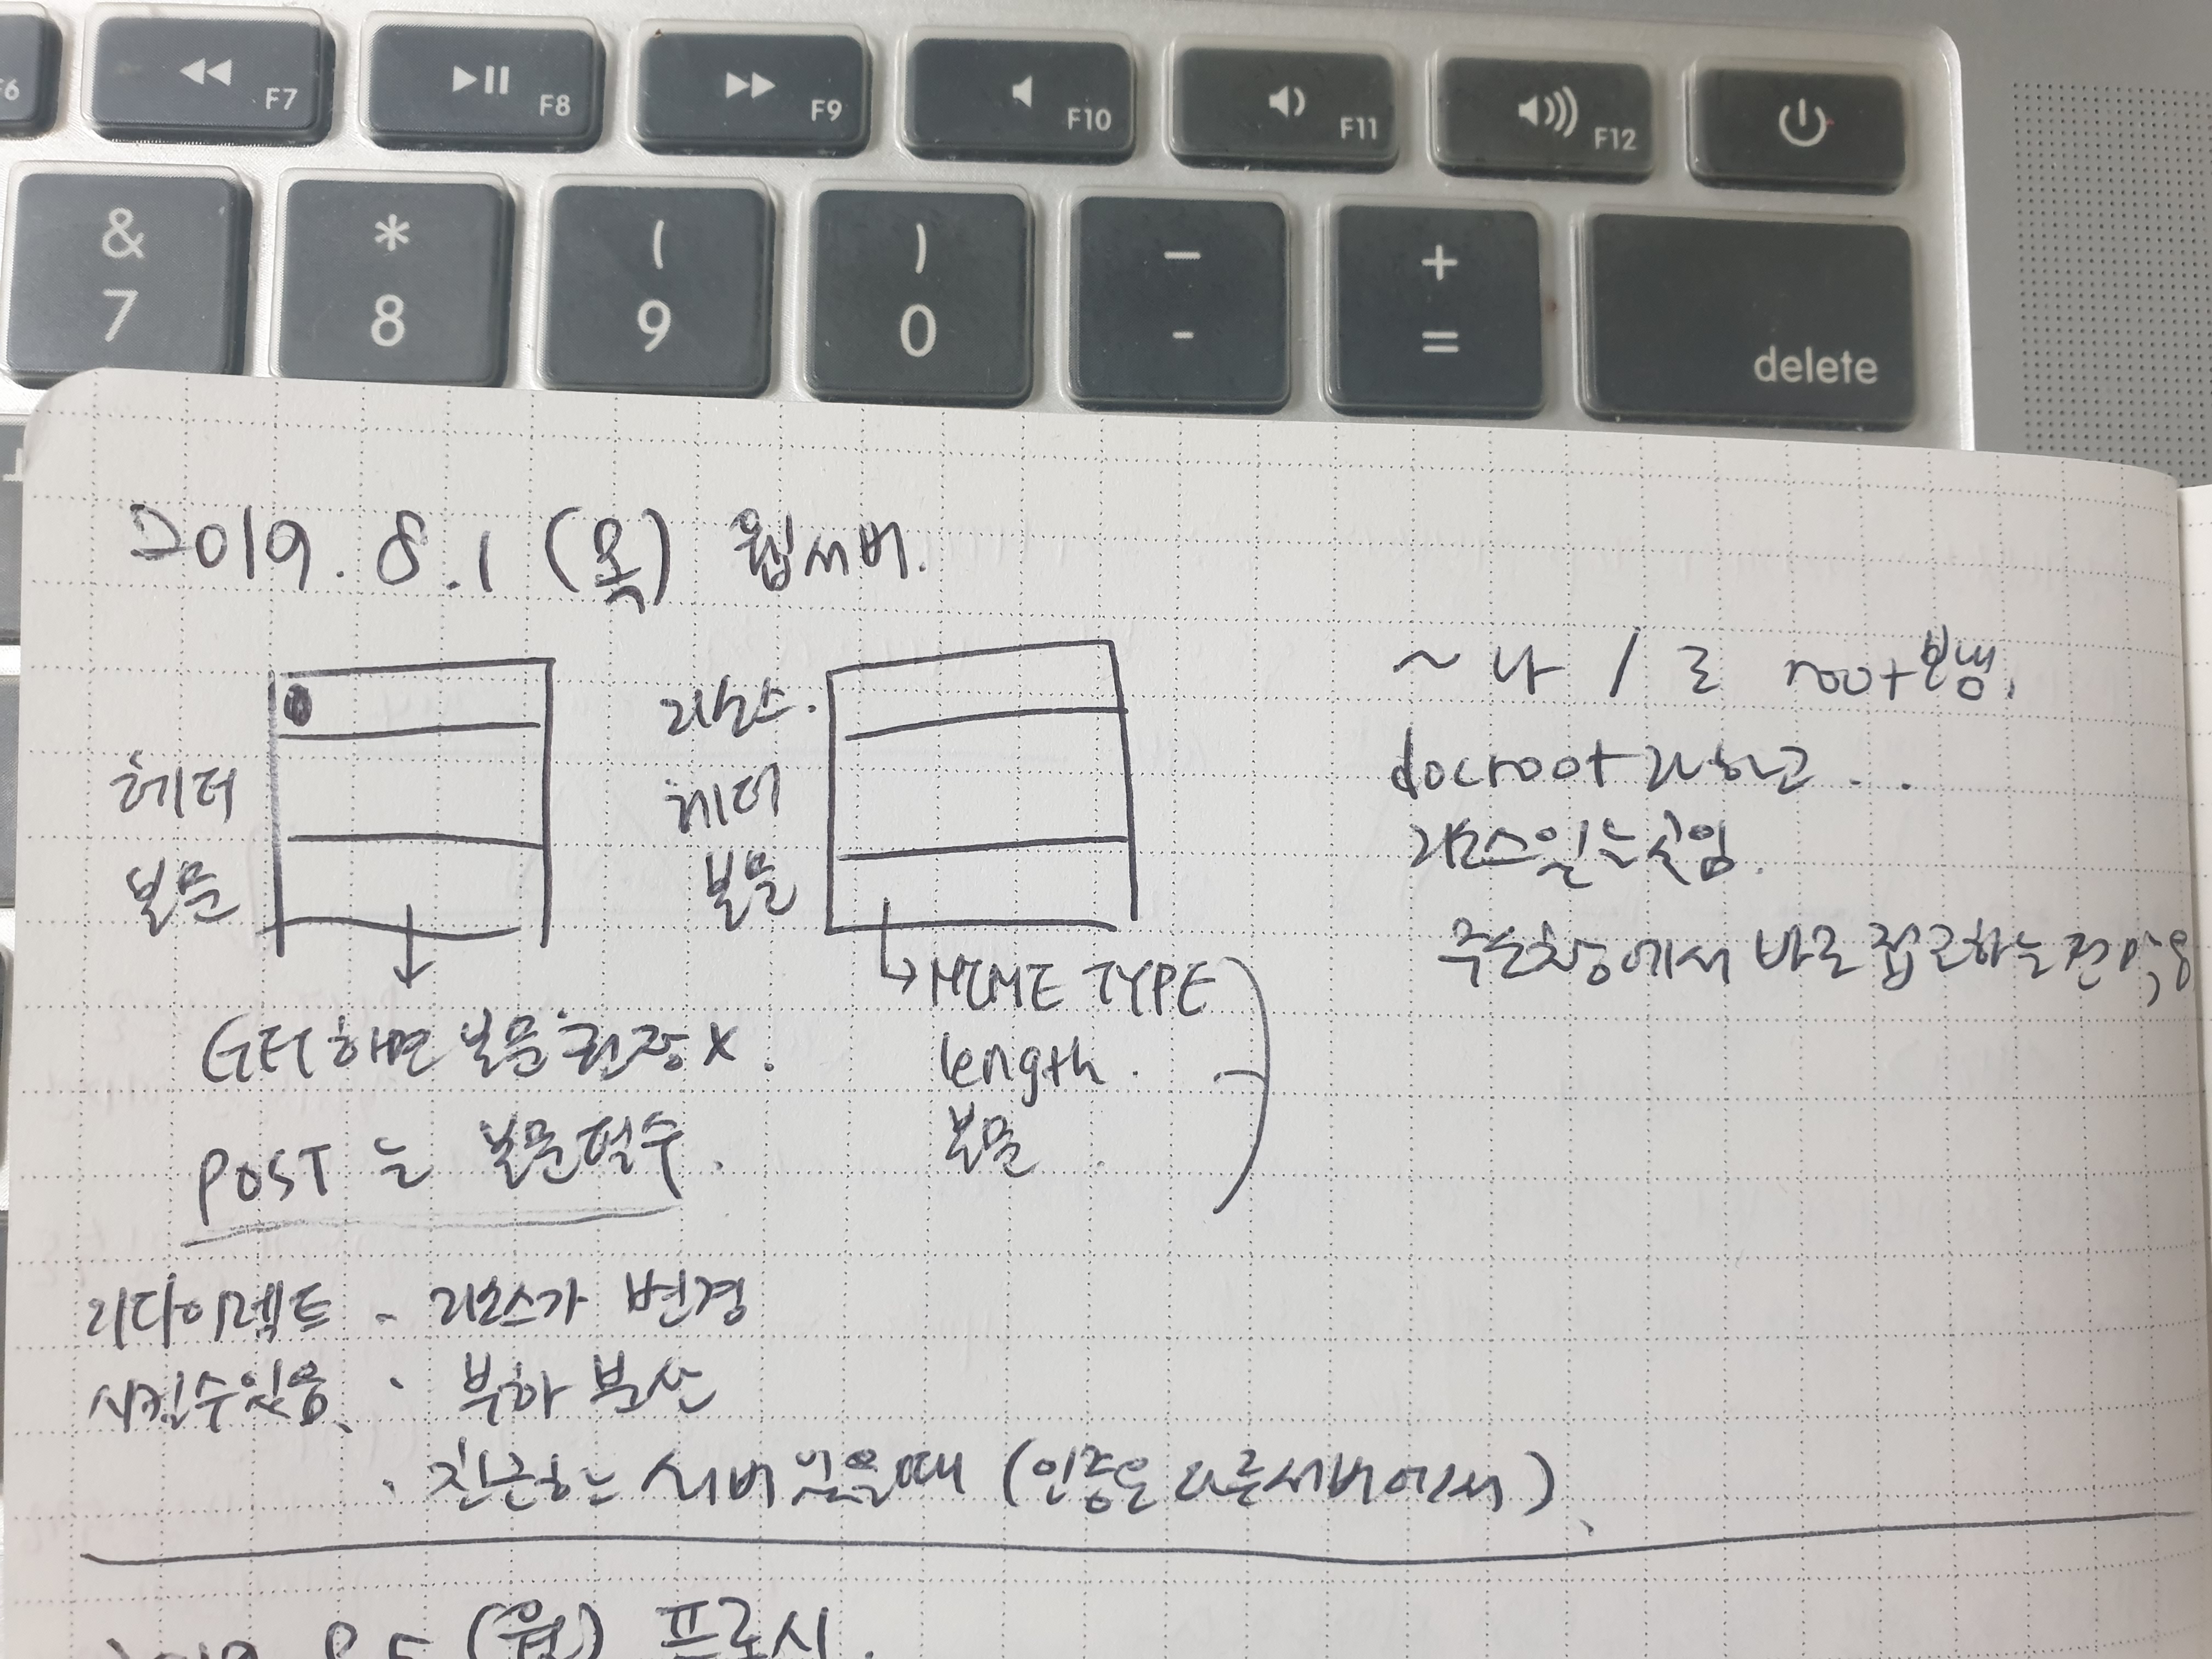 F6
F7
F8
F9
F10
F11
F12
&
7
*
8
(
9
)
0
—
-
+
=
delete
2019. 8. 1 (목) 웹서버.
헤더
본문
GET하면 본문 권장 X.
POST 는 본문필수.
리소스.
헤더
본문
MIME TYPE
length.
본문
~나 / 로 root 보냄.
docroot 라하고...
리소스 있는 곳임.
주소창에서 바로 접근하는건
리다이렉트 · 리소스가 변경
시킬수있음. · 부하 분산
· 친근하는 서버 있을때 (인증은 다른서버에서).
2019. 8. 5 (월) 프로시.